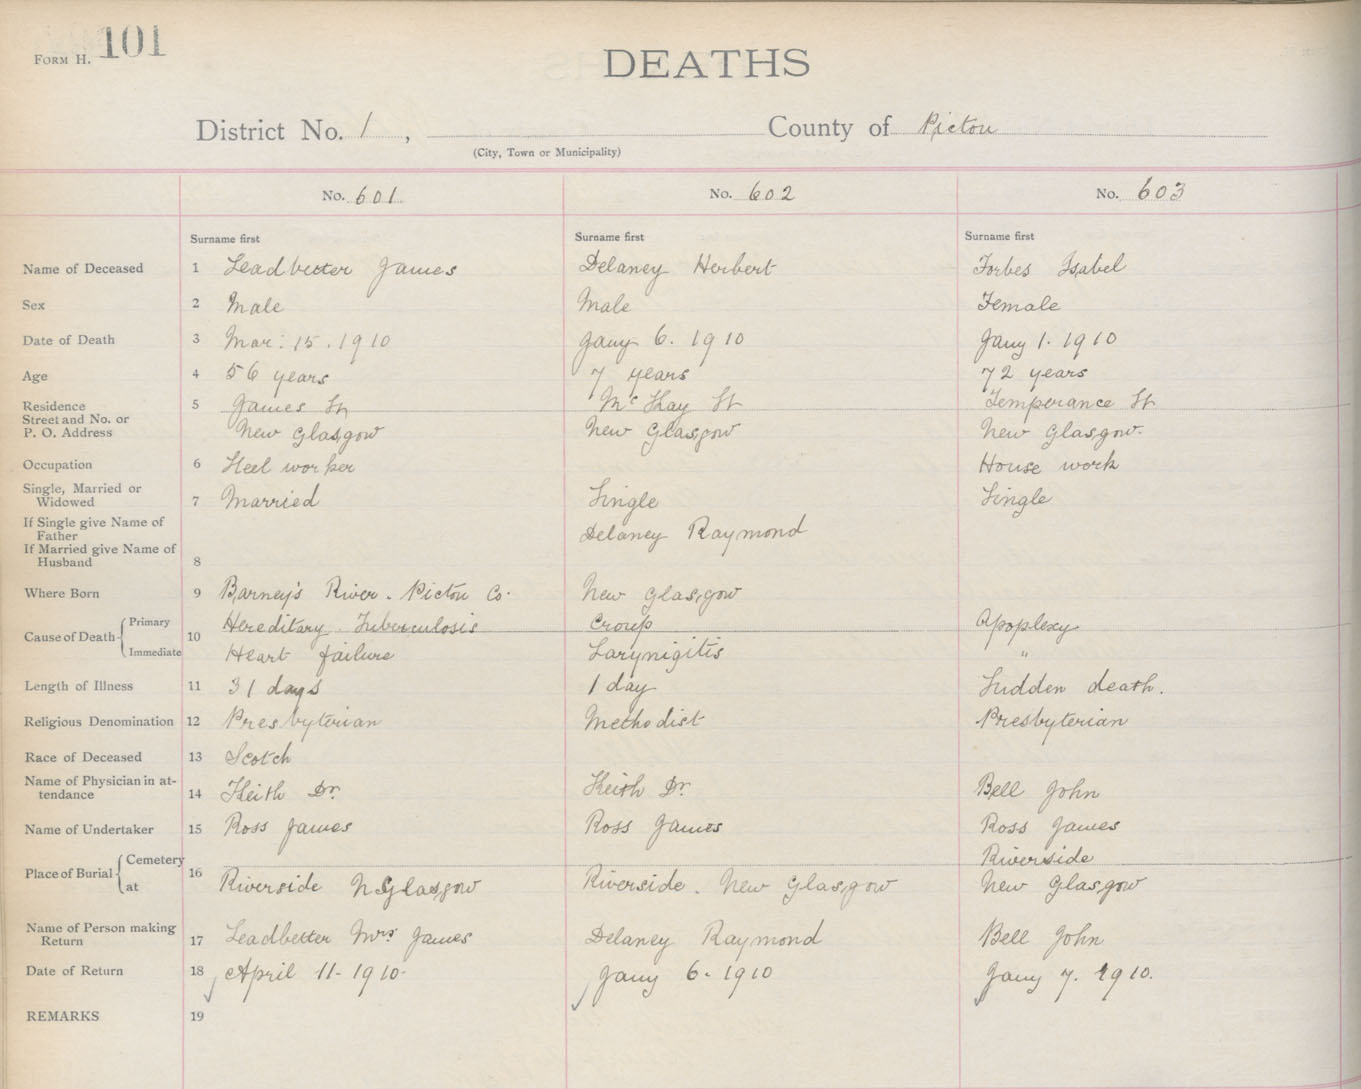 FORM H. 101
DEATHS
District No. 1, County of Pictou
(City, Town or Municipality)
No. 601 No. 602 No. 603
Surname first Surname first Surname first
Name of Deceased 1 Leadbetter James Delaney Herbert Forbes Isabel
Sex 2 Male Male Female
Date of Death 3 Mar: 15. 1910 Jany 6. 1910 Jany 1. 1910
Age 4 56 years 7 years 72 years
Residence 5 James St McKay St Temperance St
Street and No. or
P. O. Address New Glasgow New Glasgow New Glasgow.
Occupation 6 Steel worker House work
Single, Married or
Widowed 7 Married Single Single
If Single give Name of
Father Delaney Raymond
If Married give Name of
Husband 8
Where Born 9 Barney's River. Pictou Co. New Glasgow
Cause of Death Primary 10 Hereditary Tuberculosis Croup Apoplexy
Immediate Heart failure Larynigitis "
Length of Illness 11 31 days 1 day Sudden death.
Religious Denomination 12 Presbyterian Methodist Presbyterian
Race of Deceased 13 Scotch
Name of Physician in at-
tendance 14 Keith Dr. Keith Dr. Bell John
Name of Undertaker 15 Ross James Ross James Ross James
Place of Burial Cemetery 16 Riverside
at Riverside N Glasgow Riverside. New Glasgow New Glasgow
Name of Person making
Return 17 Leadbetter Mrs James Delaney Raymond Bell John
Date of Return 18 April 11-1910- Jany 6. 1910 Jany 7. 1910.
REMARKS 19